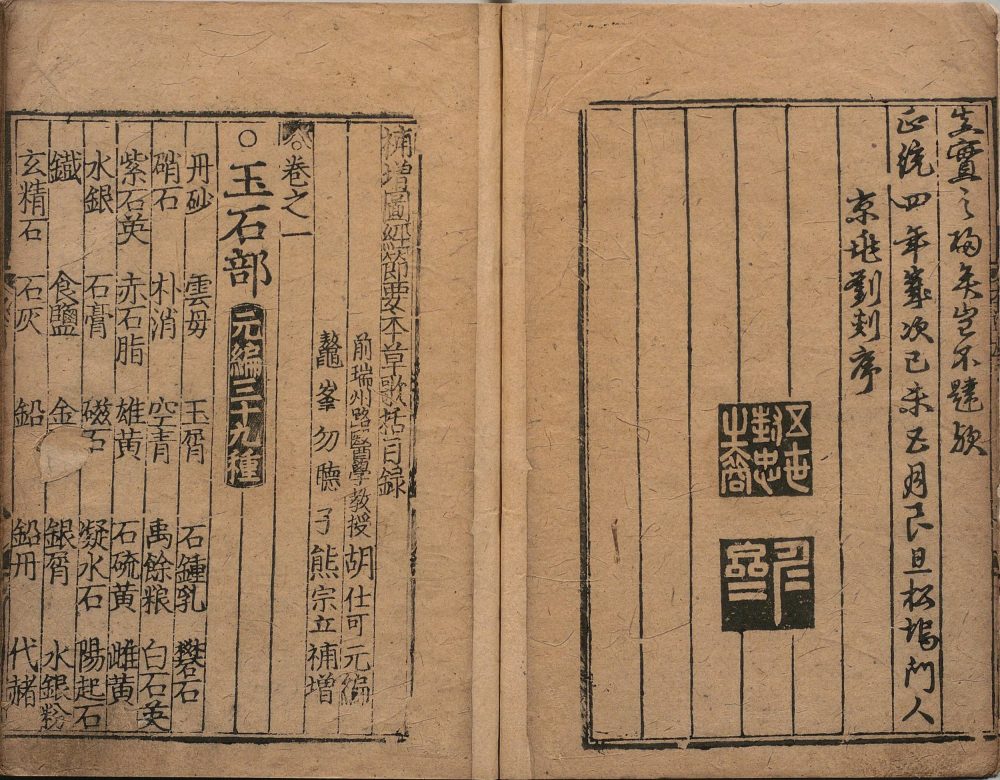 之福矣豈不韙歟
正統四年歲次己未五月良旦松塢門人
京兆劉剡序
五世封忠之裔
補增圖經節要本草歌括目録
前瑞州路醫學教授 胡仕可 元編
鼇峯勿聽子熊宗立補增
卷之一
○玉石部 元編三十九種
丹砂 雲母 玉屑 石鍾乳 礬石
硝石 朴消 空青 禹餘粮 白石英
紫石英 赤石脂 雄黃 石硫黃 雌黃
水銀 石膏 磁石 凝水石 陽起石
鐵 食鹽 金 銀屑 水銀粉
玄精石 石灰 鉛 鉛丹 代赭